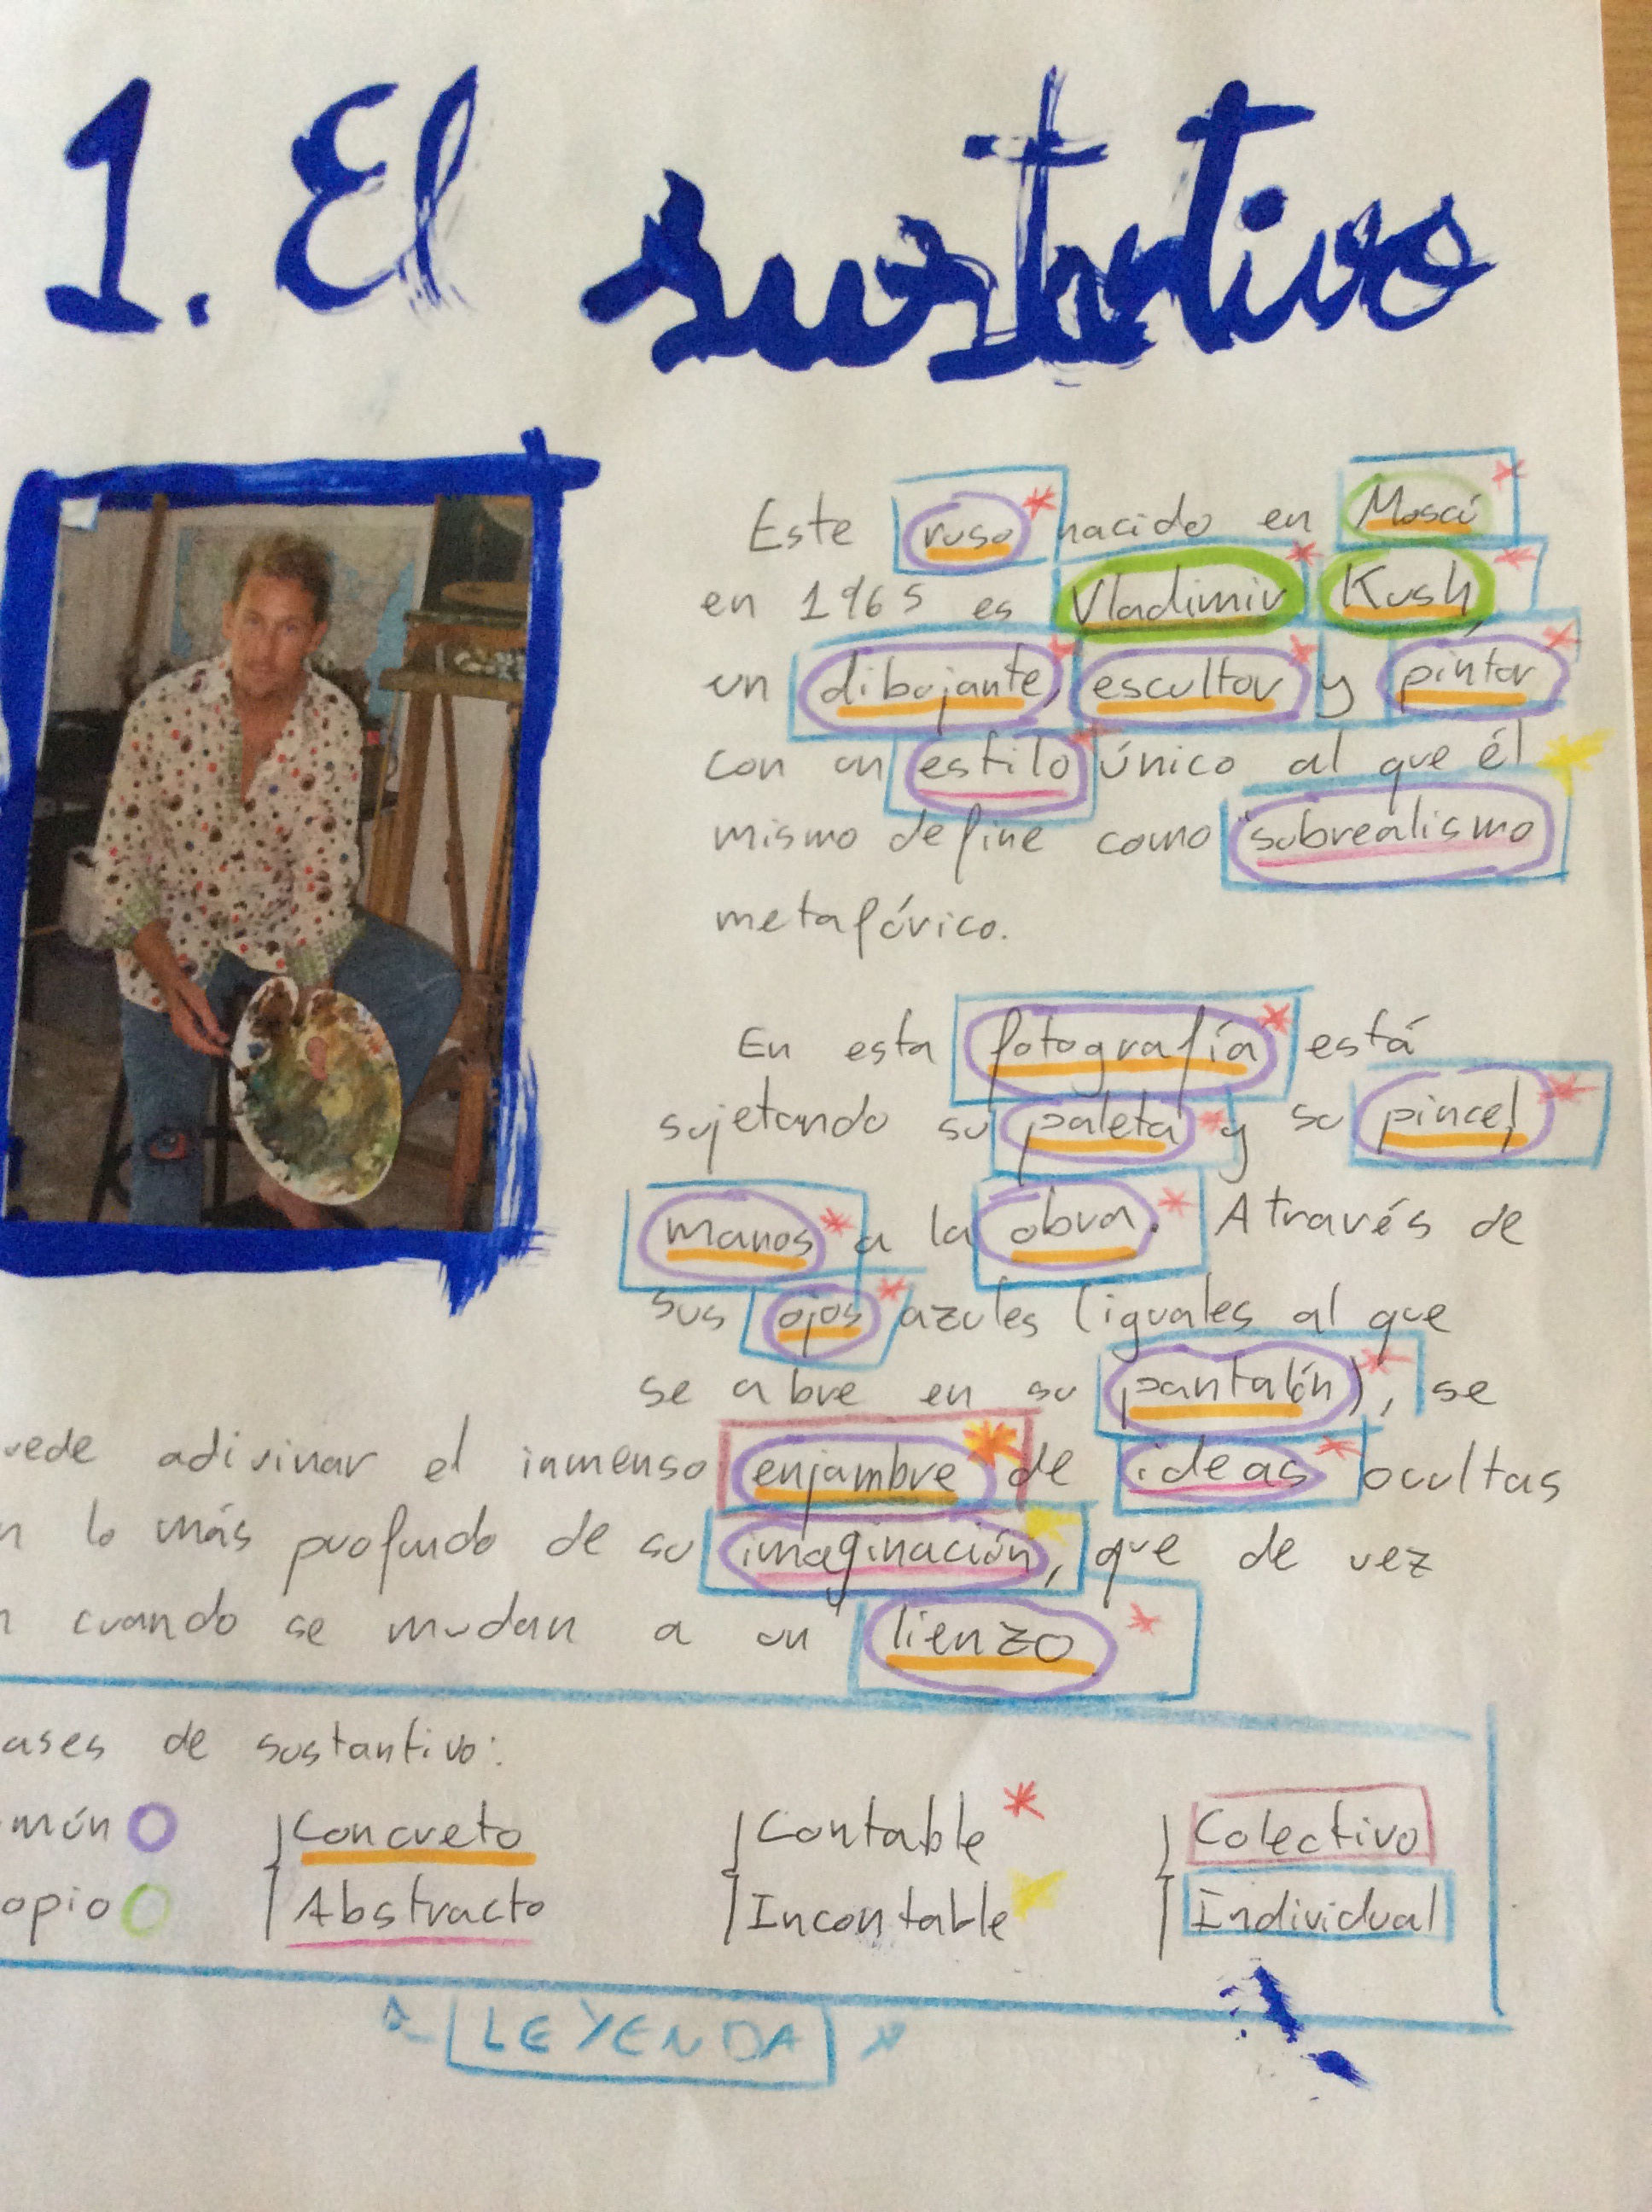 1. El sustantivo
Este ruso nacido en Moscú
en 1965 es Vladimir Kush,
un dibujante, escultor y pintor
con un estilo único al que él
mismo define como subrealismo
metafórico.
En esta fotografía está
sujetando su paleta y su pincel,
manos a la obra. A través de
sus ojos azules (iguales al que
se abre en su pantalón), se
uede adivinar el inmenso enjambre de ideas ocultas
n lo más profundo de su imaginación, que de vez
n cuando se mudan a un lienzo.
ases de sustantivo:
mún Concreto Contable Colectivo
opio Abstracto Incontable Individual
LEYENDA